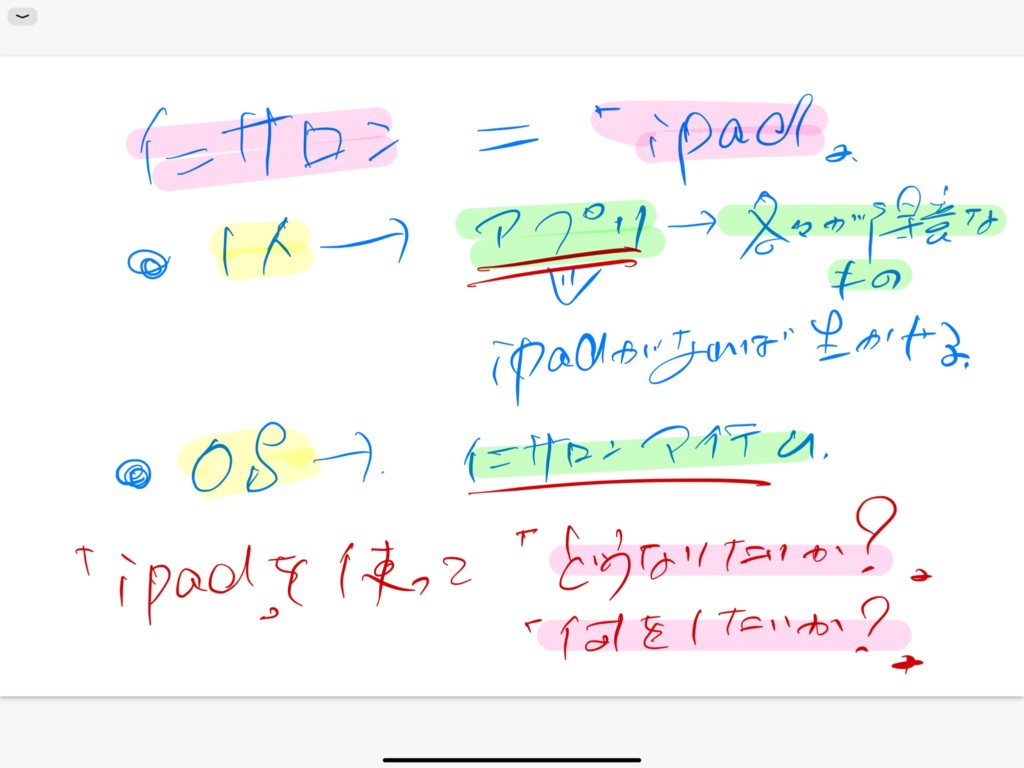 イニサロン = 「ipad」
● 1人 → アプリ → 各々が得意な
もの
ipadがなければ 生かせる
● OS → イニサロンアイテム.
「ipadを使って 「どうなりたいか?」
「何をしたいか?」